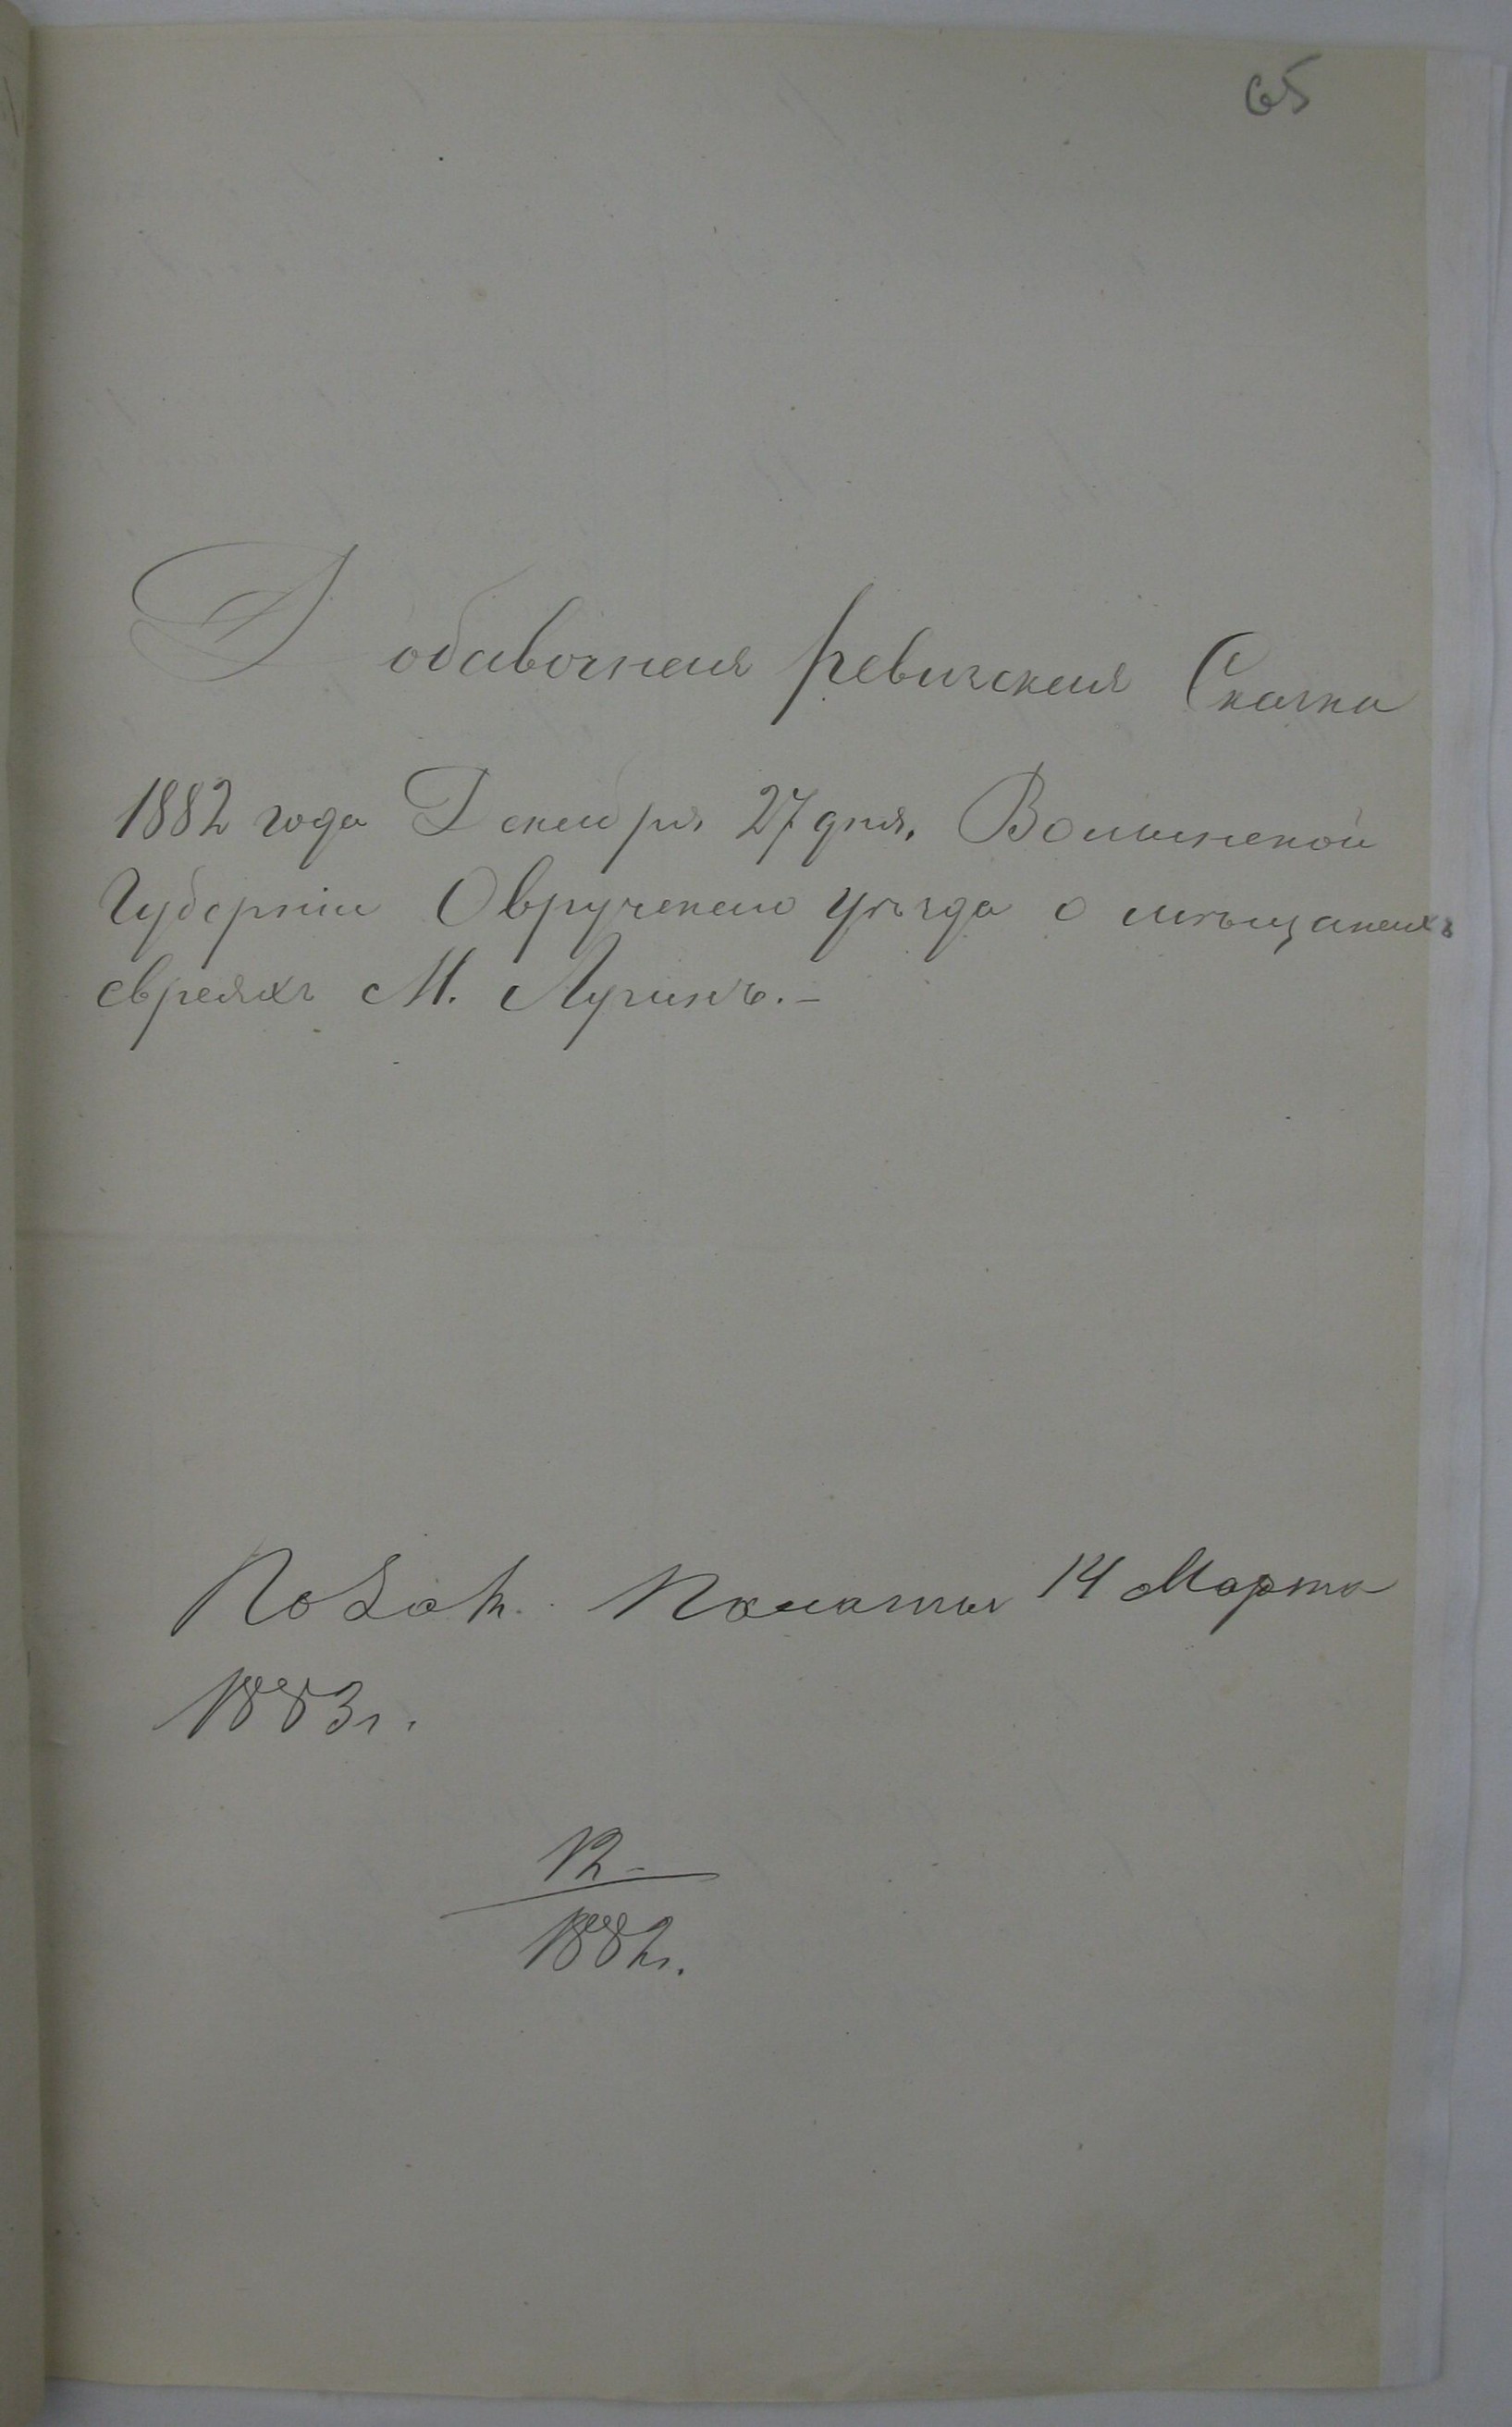 65
Добавочная ревизская Сказка
1882 года Декабря 27 дня, Волынской
Губерніи Овручскаго уѣзда о мѣщанахъ
евреяхъ М. Лугинъ.-
По Зак. Палаты 14 Марта
1883 г.
12-
1882 г.